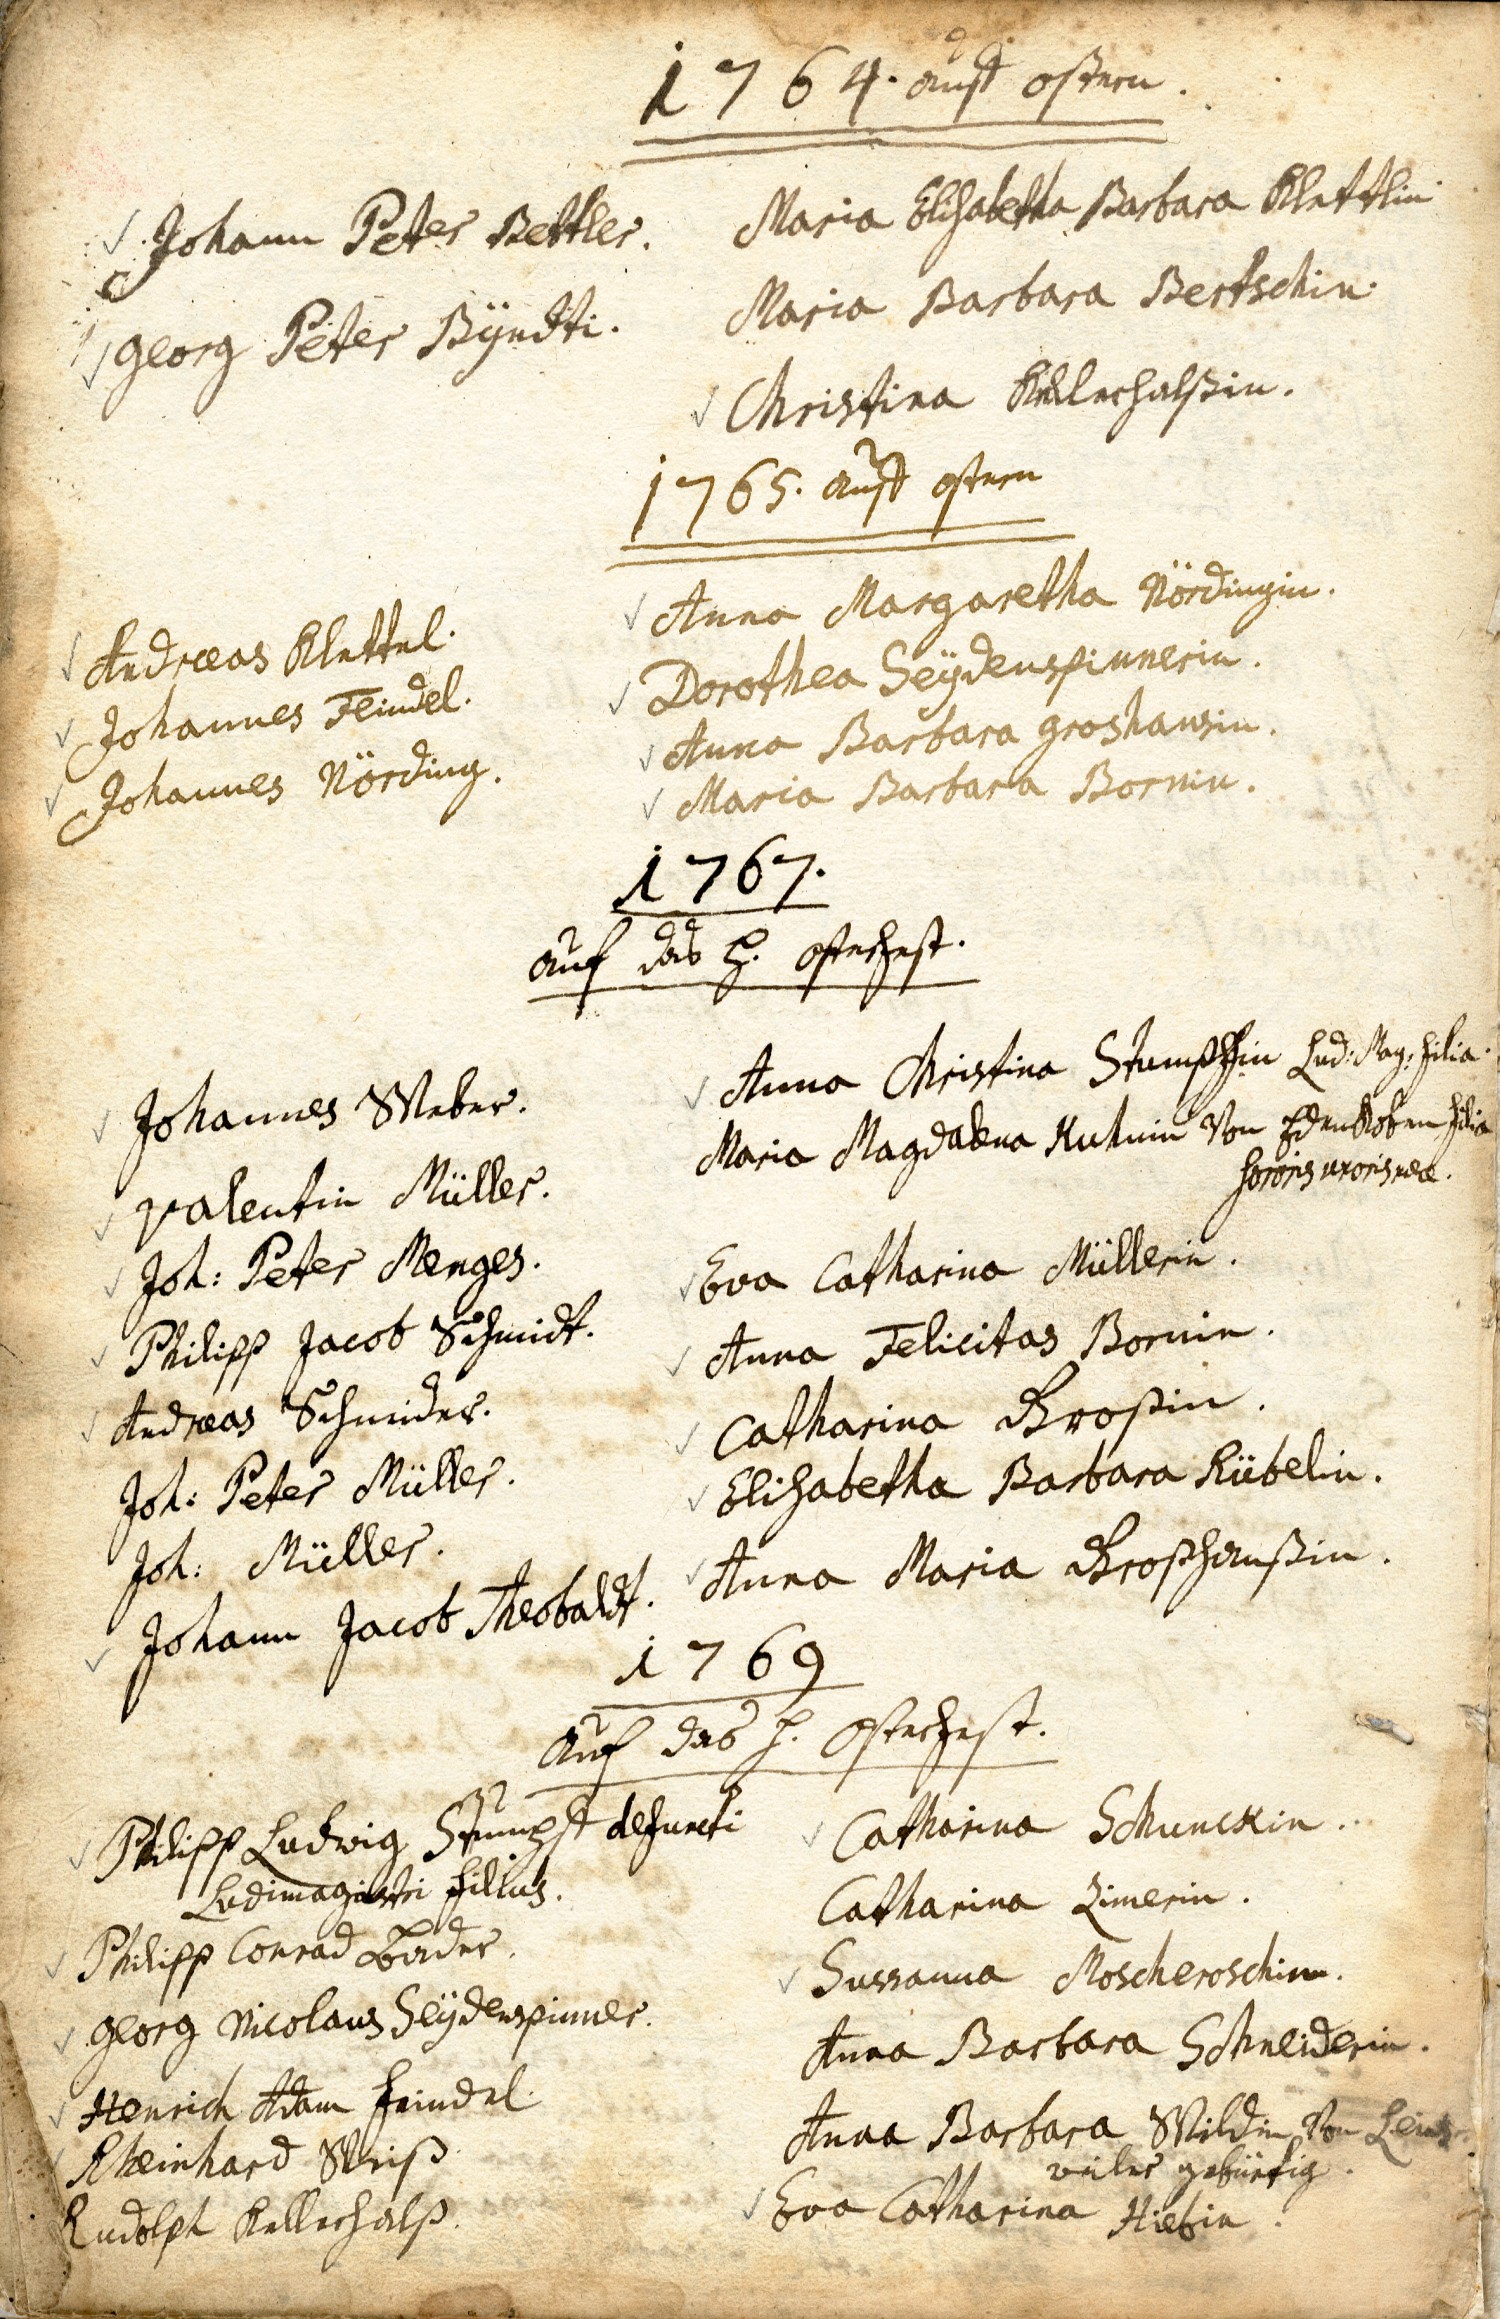 1764. auff ostern.
Johann Peter Bettler.
Georg Peter Bÿndti.
Maria Elisabetha Barbara Klettlin
Maria Barbara Bertschin.
Christina Kellerhalßin.
1765. auff ostern
Andreas Klettel.
Johannes Feindel.
Johannes Nörding.
Anna Margaretha Nördingin.
Dorothea Seÿdenspinnerin.
Anna Barbara Groshansin.
Maria Barbara Bornin.
1767.
auf das H. osterfest.
Johannes Weber.
Valentin Müller.
Joh: Peter Menges.
Philipp Jacob Schmidt.
Andreas Schneider.
Joh: Peter Müller.
Joh: Müller.
Johann Jacob Theobaldt.
Anna Christina Stumpffin Lud: Mag: filia.
Maria Magdalena Kuhnin von Edenkoben filia
sororis uxoris meae.
Eva Catharina Müllerin.
Anna Felicitas Bornin.
Catharina Großin.
Elisabetha Barbara Kübelin.
Anna Maria Großhanßin.
1769
auf das H. Osterfest.
Philipp Ludwig Stumpff defuncti
Ludimagistri filius.
Philipp Conrad Bader.
Georg Nicolaus Seÿdenspinner.
Henrich Adam Feindel.
Rheinhard Weiß
Rudolph Kellerhalß.
Catharina Schunckin.
Catharina Zimerin.
Sussanna Moscheroschin.
Anna Barbara Schneiderin.
Anna Barbara Wildin von Leins-
weiler gebürtig.
Eva Catharina Hiebin.